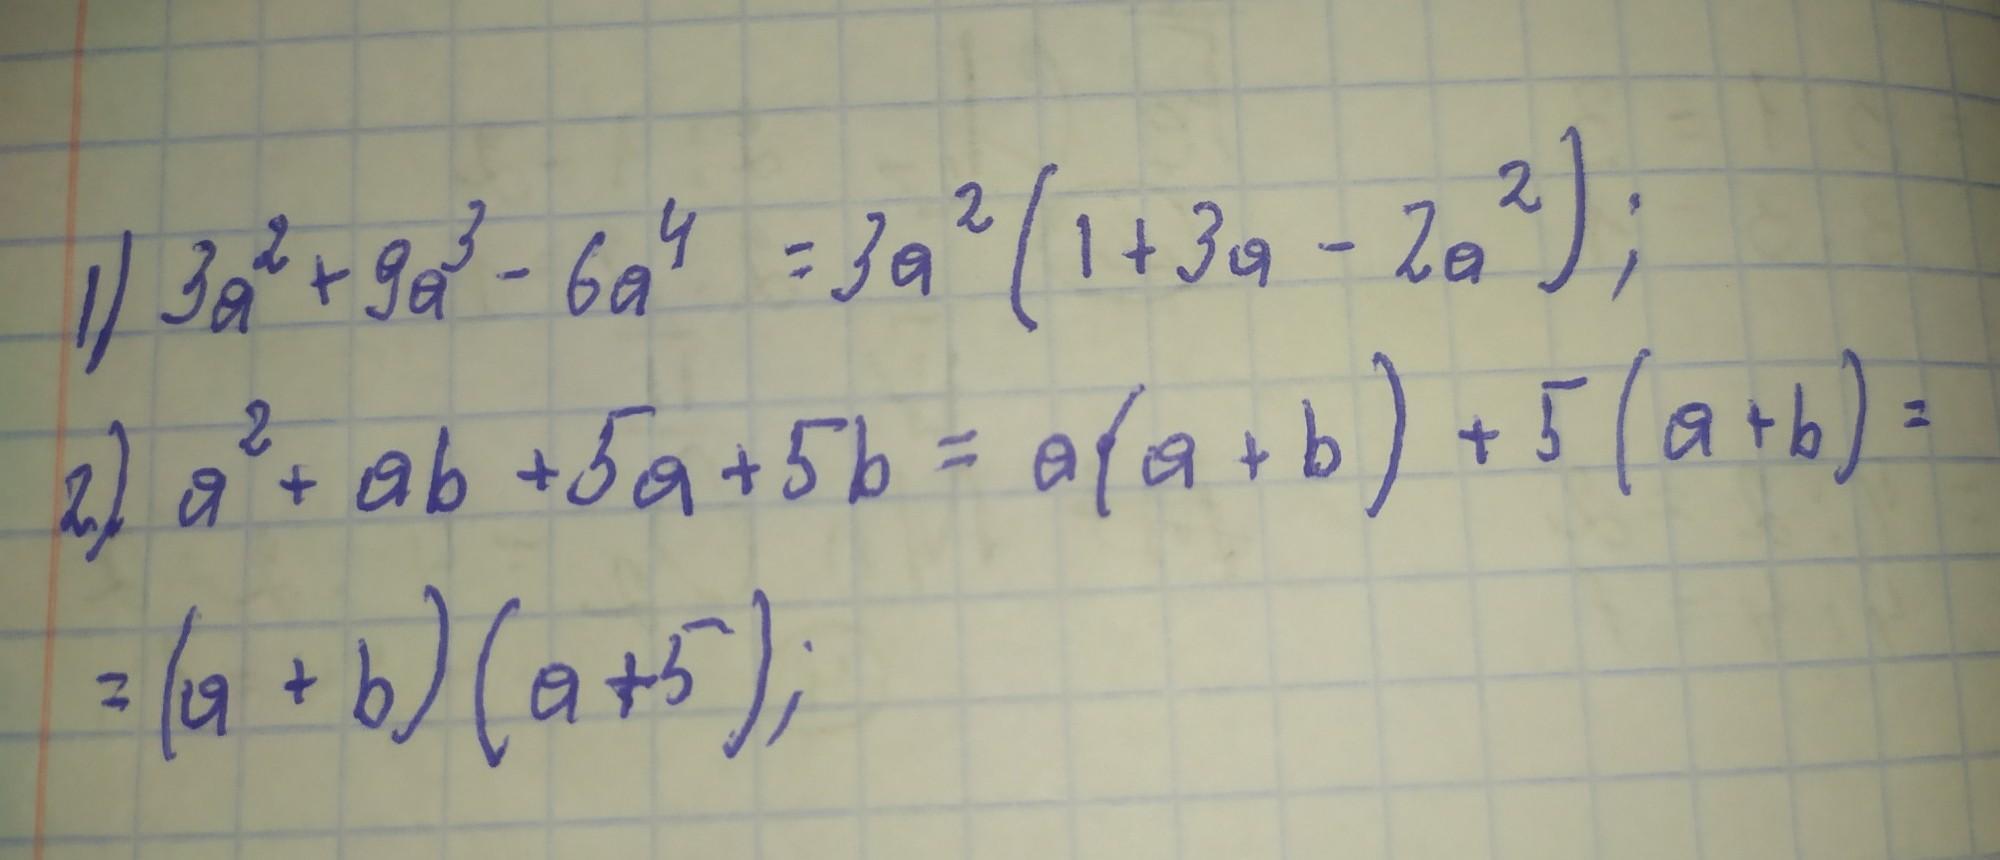 1) 3a² + 9a³ - 6a⁴ = 3a² (1 + 3a - 2a²);
2) a² + ab + 5a + 5b = a(a + b) + 5(a + b) =
= (a + b)(a + 5);